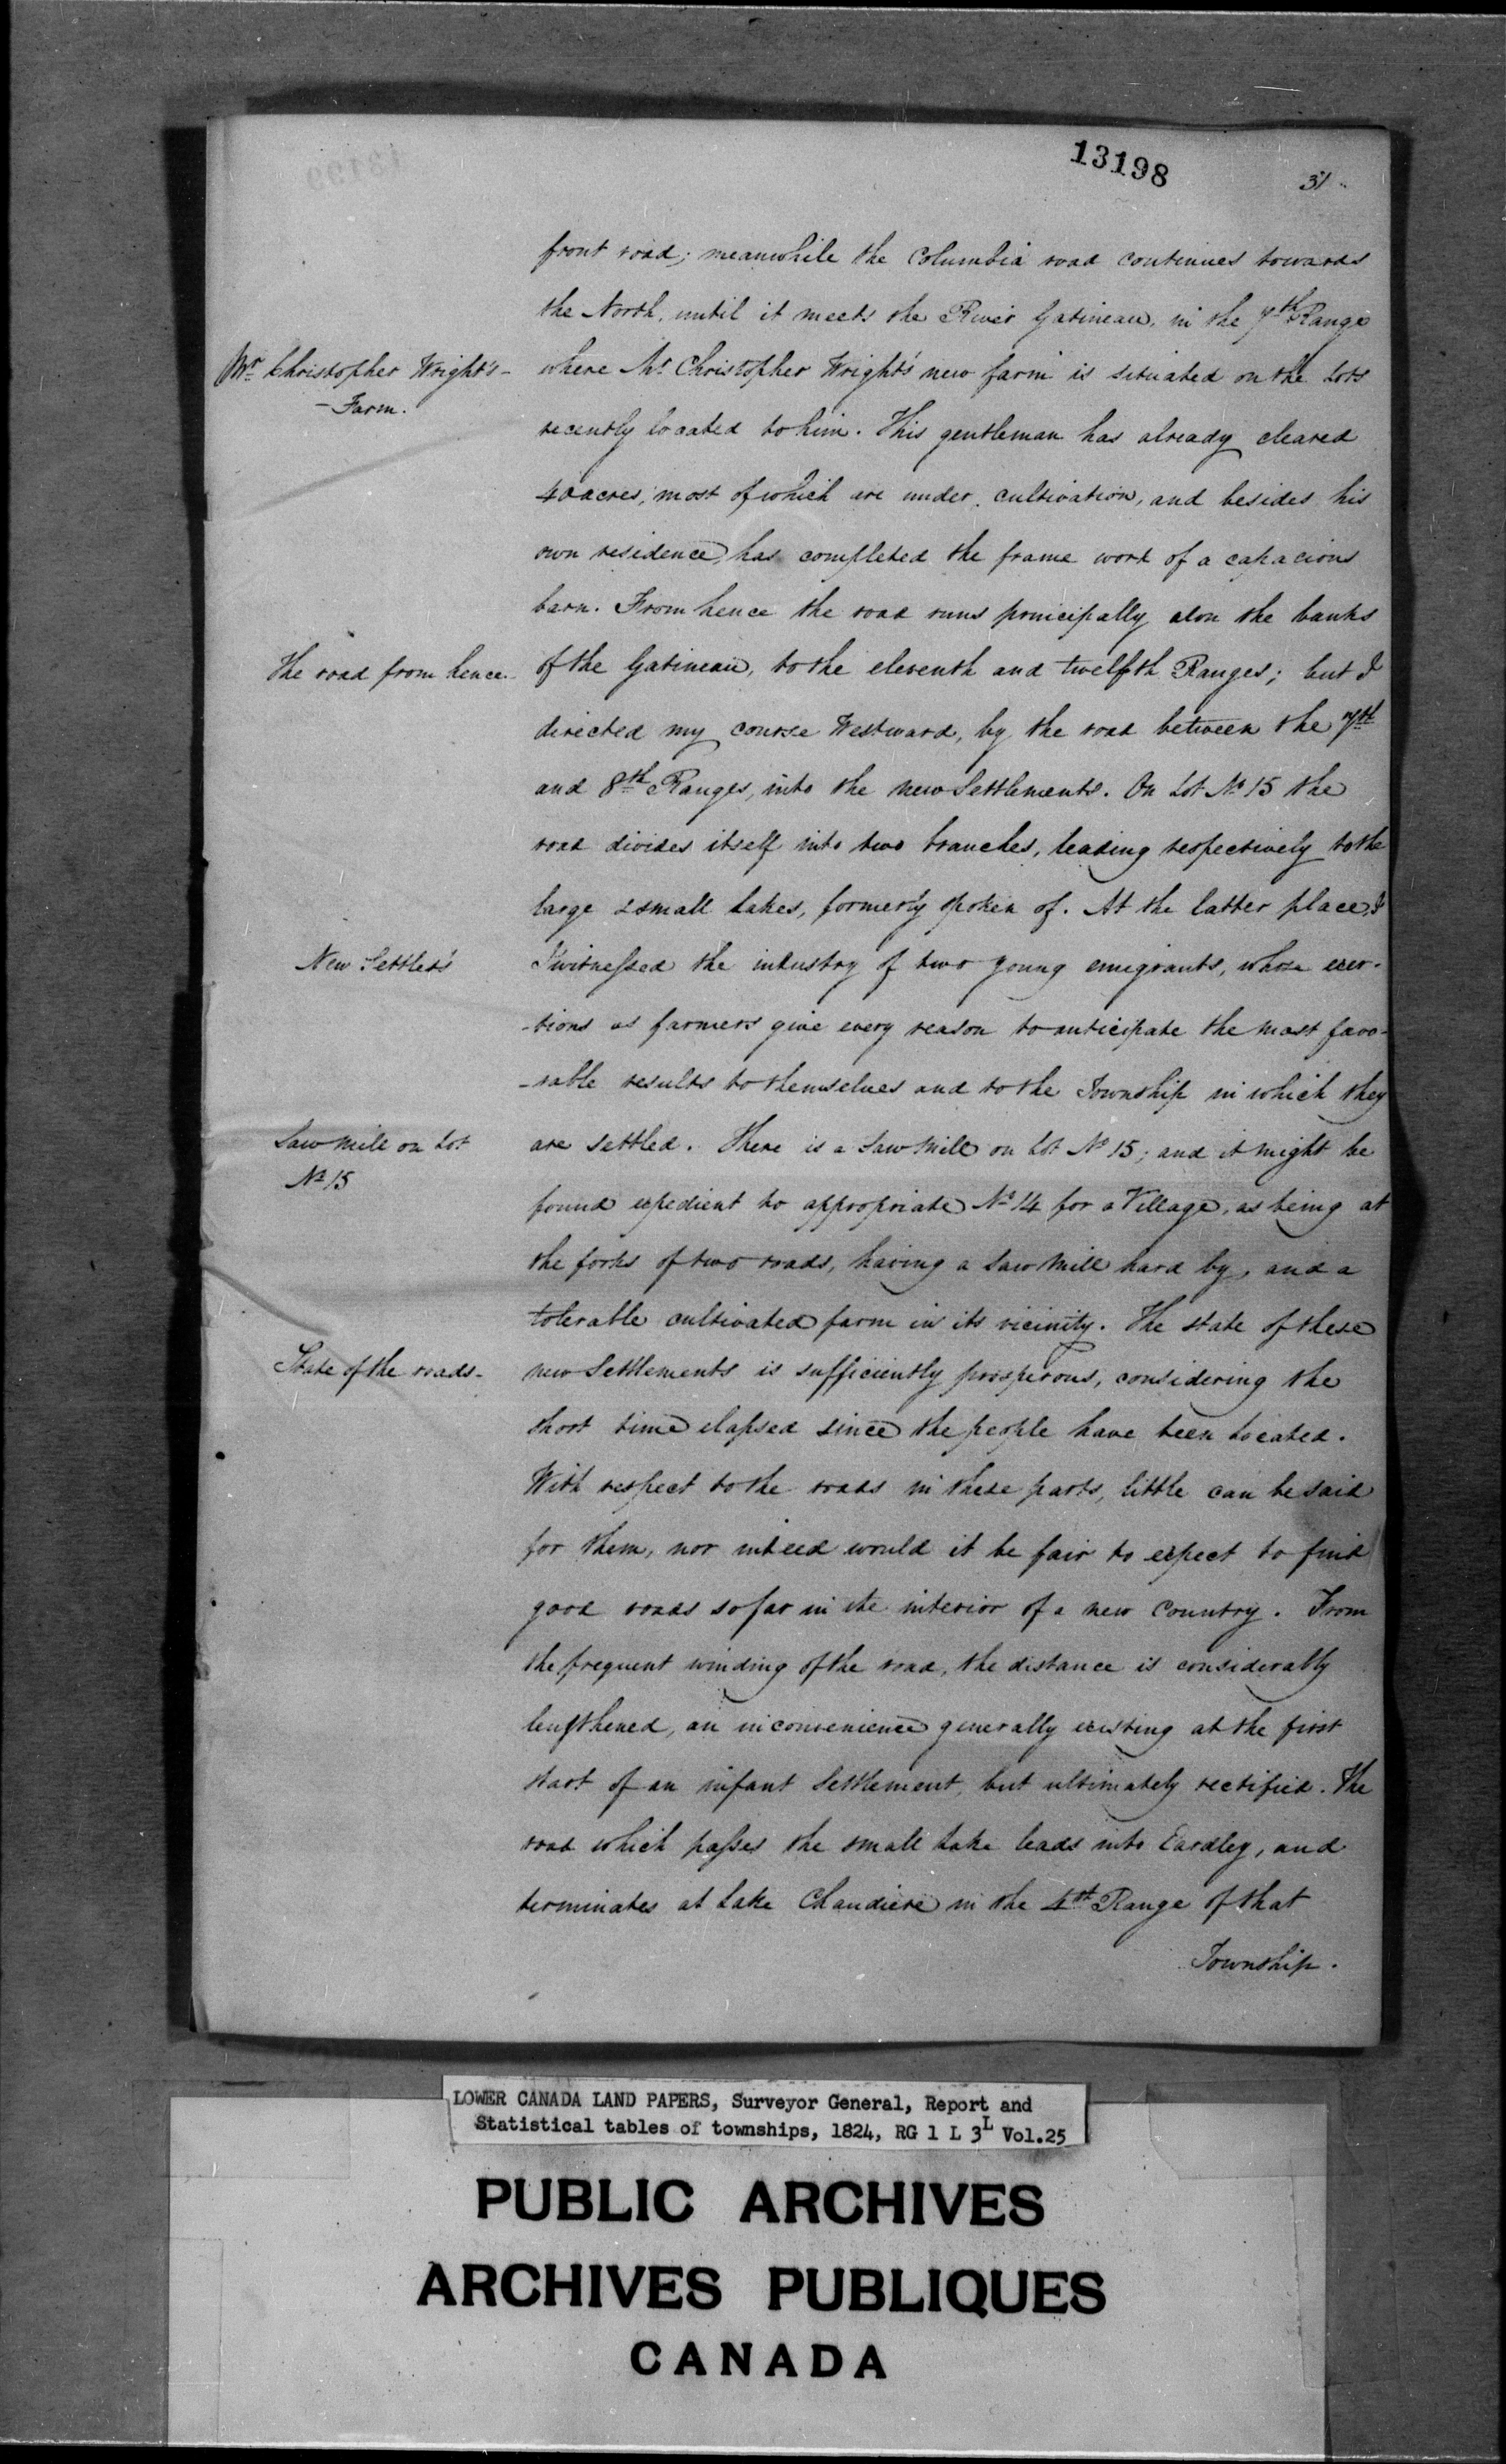 13198
31
front road; meanwhile the Columbia road continues towards
the North, until it meets the River Gatineau, in the 7th Range
Mr Christopher Wright's
- Farm.
where Mr Christopher Wright's new farm is situated on the Lots
recently located to him. This gentleman has already cleared
40 acres, most of which are under cultivation, and besides his
own residence, has completed the frame work of a capacious
barn. From hence the road runs principally alon the banks
The road from hence
of the Gatineau, to the eleventh and twelfth Ranges; but I
directed my course Westward, by the road between the 7th
and 8th Ranges, into the new Settlements. On Lot No 15 the
road divides itself into two branches, leading respectively to the
large & small Lakes, formerly spoken of. At the latter place, I
New Settlers
I witnessed the industry of two young emigrants, whose exer-
-tions as farmers give every reason to anticipate the most favo-
-rable results to themselves and to the Township in which they
Saw Mill on Lot
No 15
are settled. There is a Saw Mill on Lot No 15; and it might be
found expedient to appropriate No 14 for a Village, as being at
the forks of two roads, having a Saw Mill hard by, and a
tolerable cultivated farm in its vicinity. The state of these
State of the roads-
new Settlements is sufficiently prosperous, considering the
short time elapsed since the people have been located.
With respect to the roads in these parts, little can be said
for them, nor indeed would it be fair to expect to find
good roads so far in the interior of a new Country. From
the frequent winding of the road, the distance is considerably
lengthened, an inconvenience generally existing at the first
start of an infant Settlement, but ultimately rectified. The
road which passes the small Lake leads into Eardley, and
terminates at Lake Chaudiere in the 4th Range of that
Township.
LOWER CANADA LAND PAPERS, Surveyor General, Report and
Statistical tables of townships, 1824, RG 1 L 3L Vol.25
PUBLIC ARCHIVES
ARCHIVES PUBLIQUES
CANADA